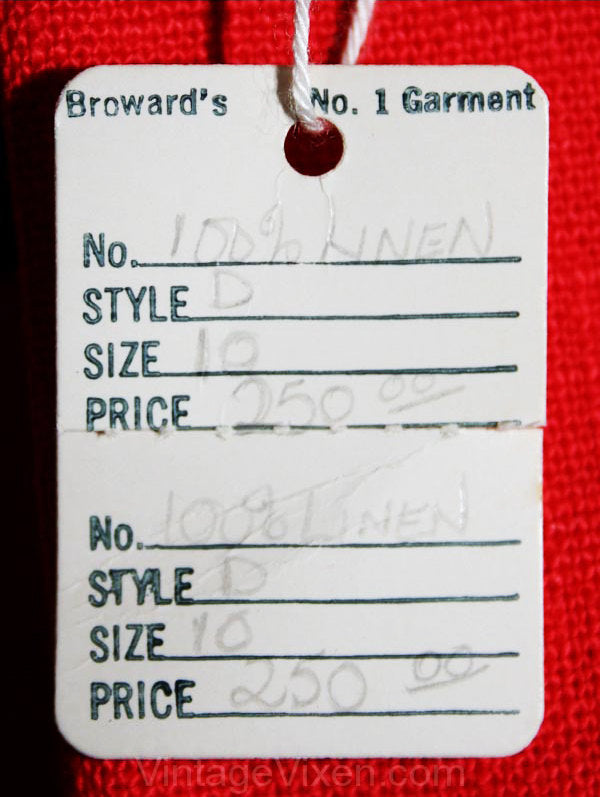 Broward's No. 1 Garment
No. 100% LINEN
STYLE D
SIZE 10
PRICE 250 00
No. 100% LINEN
STYLE D
SIZE 10
PRICE 250 00
VintageVixen.com